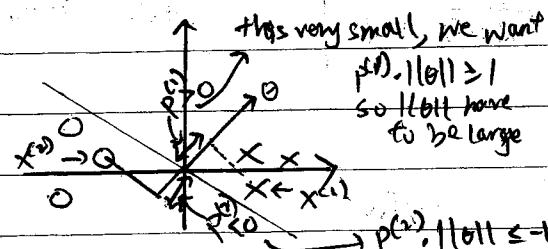 this very small, we want
p^(1).||θ|| ≥ 1
so ||θ|| have
to be large
p^(1) > 0
θ
x^(2) →
x^(1)
p^(2) < 0
p^(2).||θ|| ≤ -1